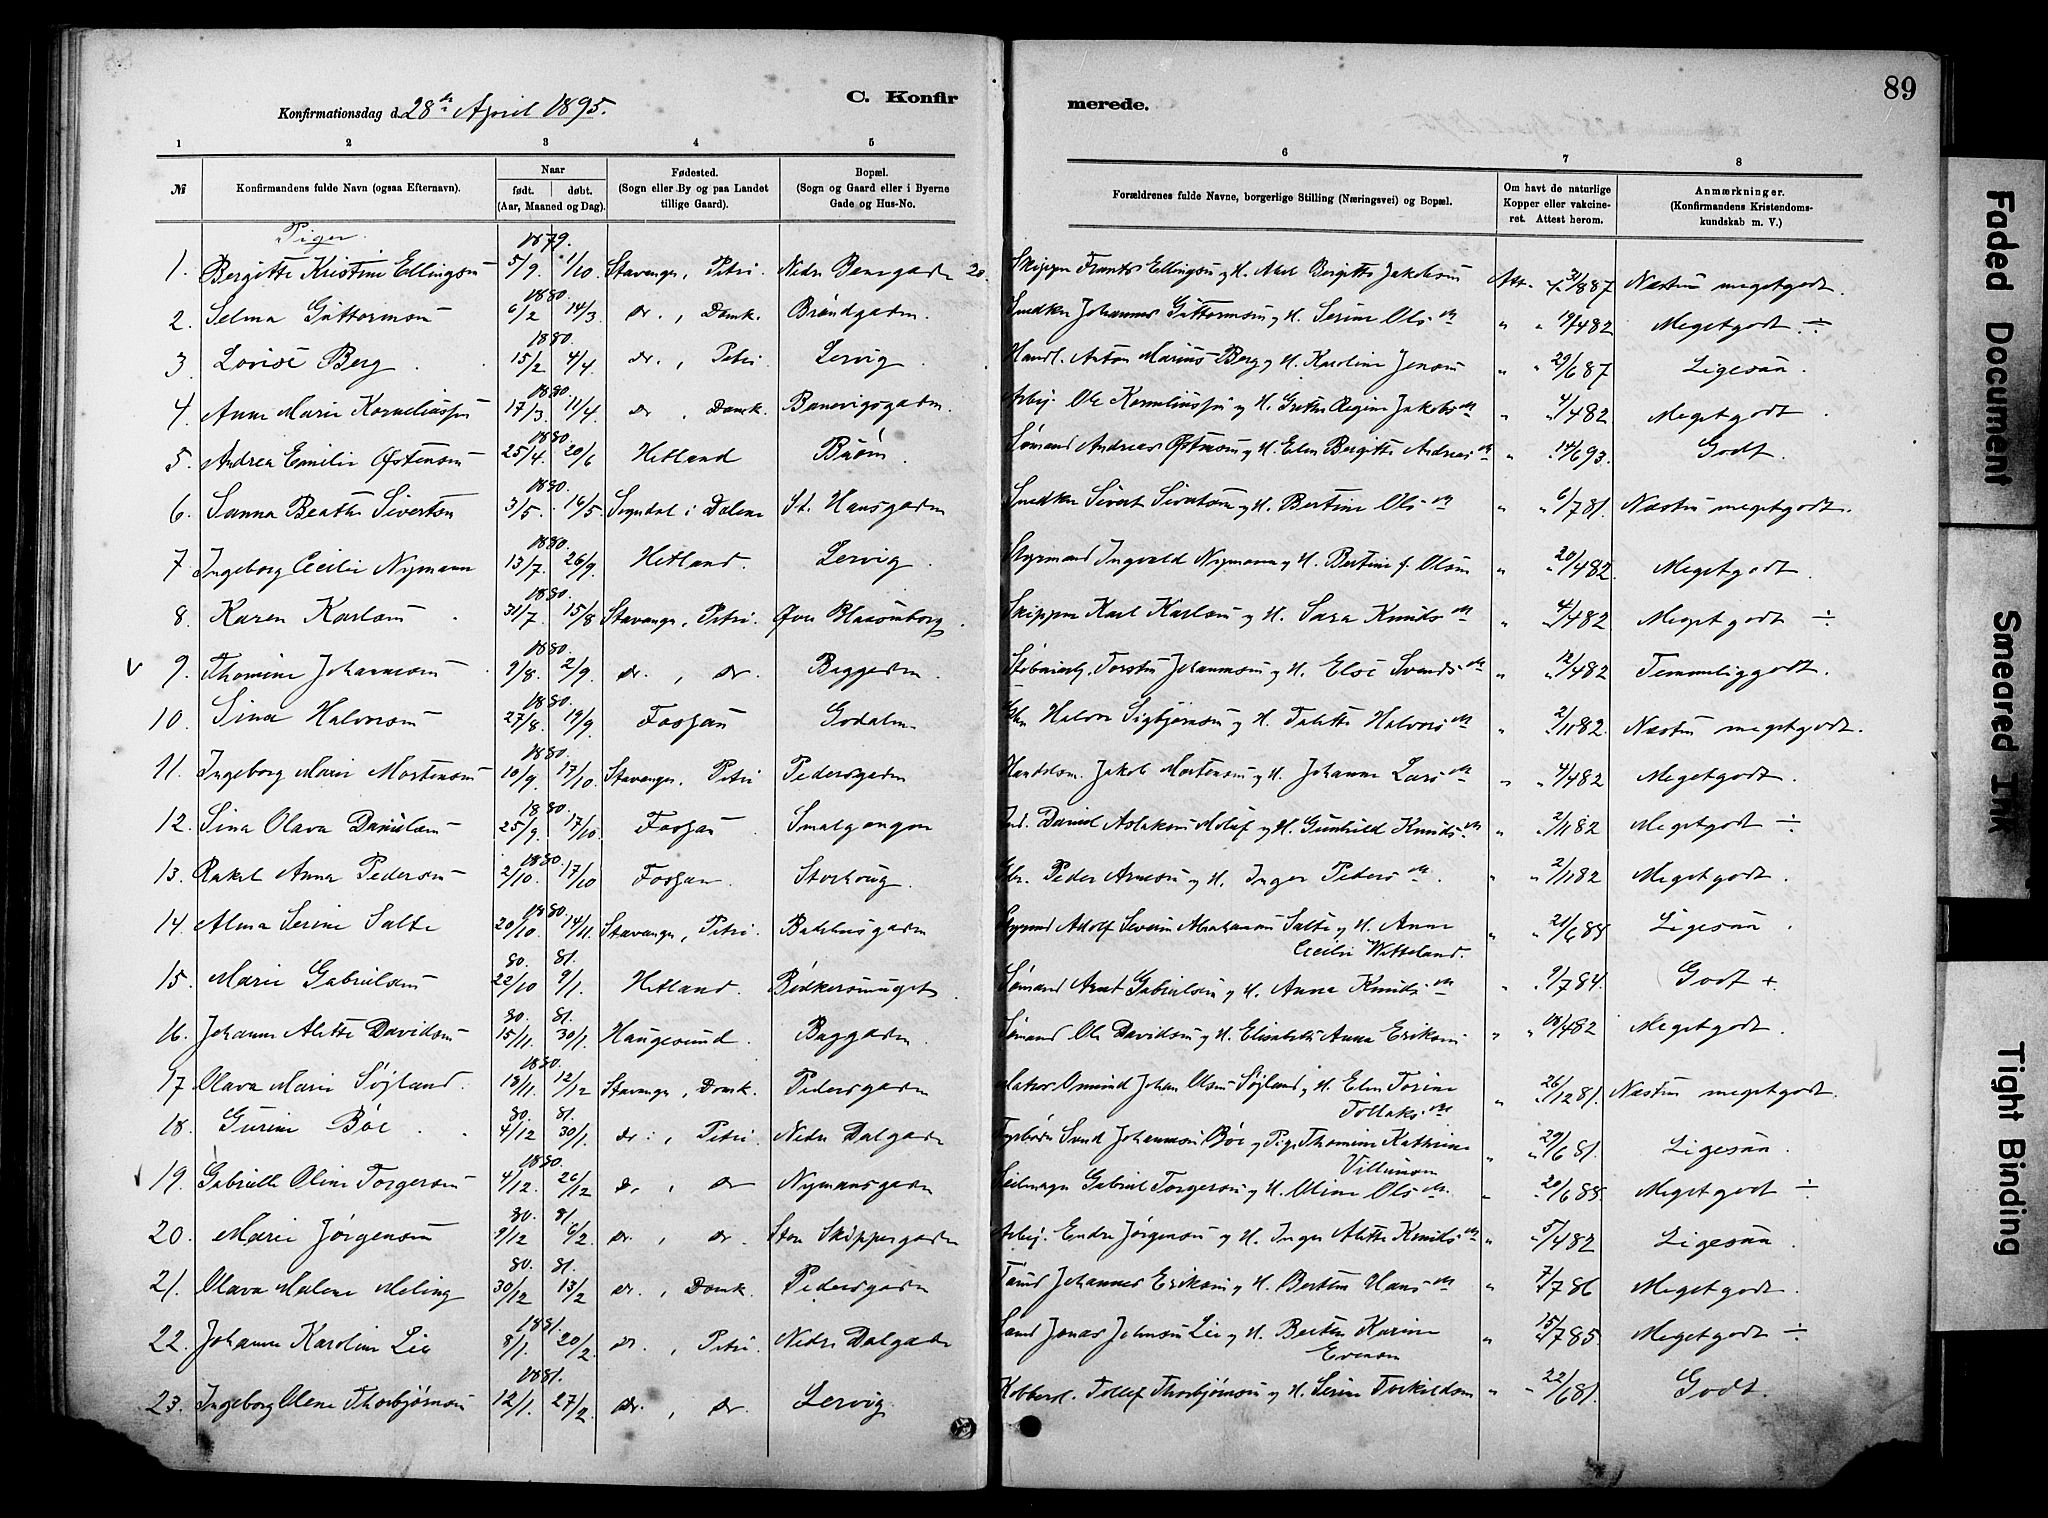 Konfirmationsdag d. 28de April 1895.
C. Konfir
merede.
89
1 2 3 4 5 6 7 8
№ Konfirmandens fulde Navn (ogsaa Efternavn). Naar født. døbt. (Aar, Maaned og Dag). Fødested. (Sogn eller By og paa Landet tillige Gaard). Bopæl. (Sogn og Gaard eller i Byerne Gade og Hus-No. Forældrenes fulde Navne, borgerlige Stilling (Næringsvei) og Bopæl. Om havt de naturlige Kopper eller vakcineret. Attest herom. Anmærkninger. (Konfirmandens Kristendomskundskab m. V.)
Piger.
1879.
1. Bergitte Kristine Ellingsen 5/9. 1/10. Stavanger, Petri. Nedre 20. Skipper Frants Ellingsen og H. Abel Bergitte Jakobsen Att. 31/887 Næsten megetgodt.
1880.
2. Selma Guttormsen 6/2 14/3. do., Domk. Brøndgaden. Snedker Johannes Guttormsen og H. Serine Olsdr " " 19/482 Megetgodt ÷
1880.
3. Lovise Berg 15/2 4/4. do., Petri Lervig Handl. Anton Marius Berg og H. Karoline Jensen " " 29/687 Ligesaa.
1880.
4. Anne Marie Korneliussen 17/3. 11/4 do, Domk. Banevigsgaden. Arbej. Ole Korneliussen og H. Grethe Regine Jakobsdr " 4/482 Megetgodt.
1880.
5. Andrea Emilie Østensen 25/4. 20/6 Hetland Buøen. Sømand Andreas Østensen og H. Elen Bergitte Andreasdr " 14/693. Godt.
1880.
6. Sanna Beathe Sivertsen 3/5. 16/5. Sogndal i Dalene St. Hansgaden Snedker Sivert Sivertsen og H. Bertine Olsdr " " 6/781. Næsten megetgodt.
1880.
7. Ingeborg Cecilie Nymann 13/7. 26/9. Hetland. Lervig. Styrmand Ingvald Nymann og H. Bertine f. Olsen " " 20/482. Megetgodt.
1880.
8. Karen Karlsen 31/7. 15/8 Stavanger, Petri. Øvre Blaasenborg. Skipper Karl Karlsen og H. Sara Knudsdr " 4/482. Megetgodt ÷.
1880.
V 9. Thomine Johannesen 9/8. 2/9. do., do. Baggaden. Torsten Johannesen og H. Else Svendsdr " " 12/482 Temmeliggodt.
1880.
10. Sina Halvorsen 27/8. 19/9. Fossan Godalen Halvor Sigbjørnsen og H. Talette Halvorsdr " 2/1182. Næsten megetgodt.
1880.
11. Ingeborg Marie Mortensen 10/9. 17/10. Stavanger, Petri Pedersgaden Handelsm. Jakob Mortensen og H. Johanne Larsdr " " 4/482 Megetgodt.
1880.
12. Sina Olava Danielsen 25/9. 17/10. Fossan Smalgangen Daniel Aslaksen og H. Gunhild Knudsdr " " 2/1182 Megetgodt ÷
1880.
13. Rakel Anna Pedersen 2/10. 17/10 Fossan. Storhoug. Peder Arnesen og H. Inger Pedersdr. " " 2/1182 Megetgodt.
1880.
14. Alma Serine Salte 20/10. 14/11. Stavanger, Petri. Badehusgaden Styrmd Adolf Severin Abrahamsen Salte og H. Anne Cecilie Witteland. " " 21/685 Ligesaa.
80. 81.
15. Marie Gabrielsen 22/10 9/1. Hetland. Bødkersmuget. Sømand Arnt Gabrielsen og H. Anna Knudsdr " " 9/784. Godt +.
80. 81.
16. Johanne Alette Davidsen 15/11. 30/1. Haugesund. Baggaden. Sømand Ole Davidsen og H. Elisabeth Anna Eriksen " " 18/482 Megetgodt.
1880.
17 Olava Marie Søyland. 13/11. 12/12 Stavanger, Domk. Pedersgaden Osmund Johan Olsen Søyland og H. Elen Torine Tollaksdr " 26/1281. Næsten megetgodt.
80. 81.
18. Gurine Bøe 4/12 30/1. do., Petri. Nedre Dalgaden Svend Johannesen Bøe og Pige Thomine Kathrine Villumsen " 29/681. Ligesaa.
1880.
19. Gabrielle Oline Torgersen 4/12. 26/12 do, do Nymansgaden Seilmager Gabriel Torgersen og H. Oline Olsdr. " 20/685. Megetgodt ÷
80. 81.
20. Marie Jørgensen 9/12 6/2. do., do. Store Skippergaden Arbej. Endre Jørgensen og H. Inger Alette Knudsdr " 5/482 Ligesaa.
80. 81.
21. Olava Malene Meling 30/12 13/2 do., Domk. Pedersgaden Johannes Eriksen og H. Bertine Hansdr " 7/786 Megetgodt.
1881.
22. Johanne Karoline Lie 8/1. 20/2. do., Petri. Nedre Dalgaden Jonas Johnsen Lie og H. Berthe Karine Evensen " 15/785 Megetgodt ÷
1881.
23. Ingeborg Olene Thorbjørnsen 12/1. 27/2. do., do. Lervig Tollef Thorbjørnsen og H. Serine Torkildsen " " 22/681. Godt.
Faded Document
Smeared Ink
Tight Binding